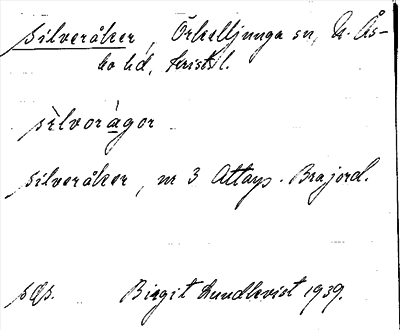 Silveråker, Örkelljunga sn, N. Ås-
bo hd, Krist. l.
silvorågor
Silveråker, nr 3 Attarp. Brajord.
Birgit Lundkvist 1939.